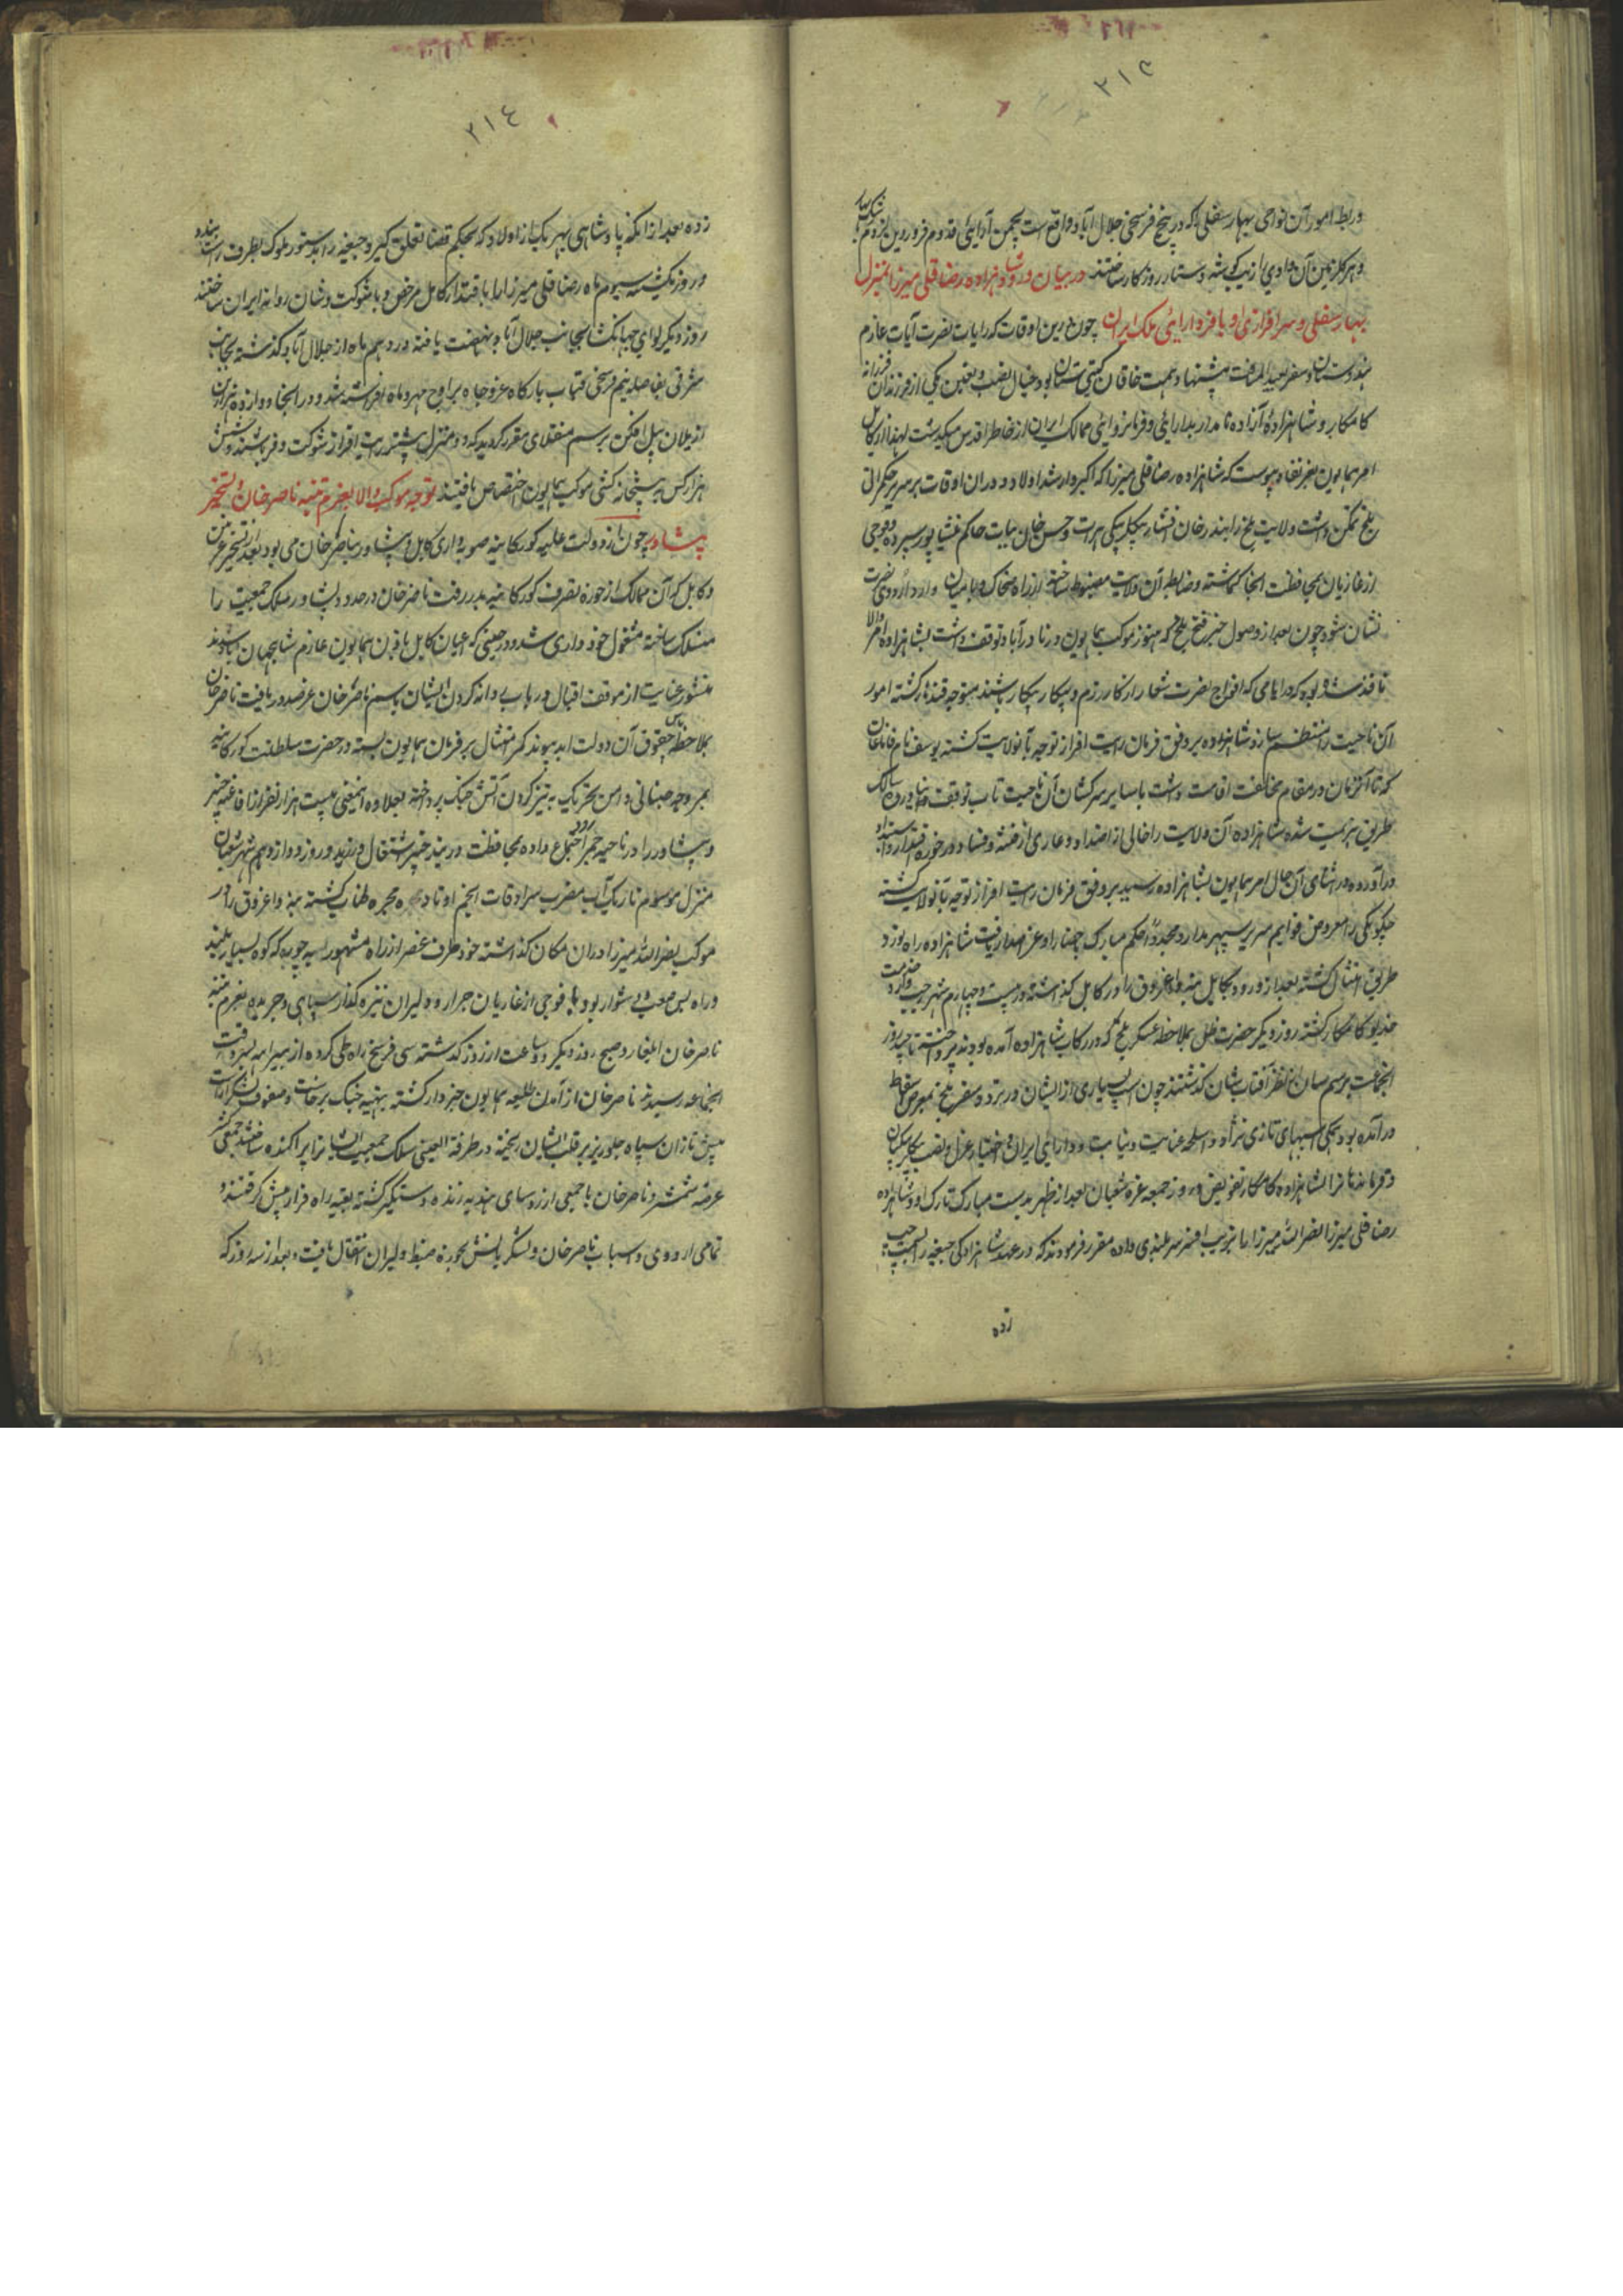 ۲۱۳
و ربط امور آن نواحی بهار سفلی را که در پنج فرسخی جلال آباد واقع است بچمن آرایئی قدوم فروردین لزوم
و هر گل زمین آن وادی را زیب گوشه دستار روزگار ساختند در بیان ورود شاهزاده رضا قلی میرزا بمنزل
بهار سفلی و سرافرازی او با فسر دارایئی ملک ایران چون درین اوقات که رایات نصرت آیات عازم
هندوستان و سفر بعید المسافت پیشنهاد همت خاقان گیتی ستان بود خیال نصب و تعیین یکی از فرزندان فرزانه
کامکار و شاهزاده آزاده نامدار بدارایئی و فرمانروایئی ممالک ایران از خاطر اقدس میگذشت لهذا از کابل
امر همایون بعز نفاذ پیوست که شاهزاده رضا قلی میرزا که اکبر و ارشد اولاد و در آن اوقات بر سریر حکمرانی
بلخ تمکن داشت ولایت بلخ را ببدر خان افشار بیگلربیگی هرات و حسن خان بیات حاکم نیشاپور سپرده و فوجی
از غازیان بمحافظت آنجا گماشته و ضابطه آن ولایت مضبوط ساخته از راه ضحاک و بامیان وارد اردوی نصرت
نشان شود چون بعد از وصول خبر فتح بلخ که هنوز موکب همایون در نادرآباد توقف داشت بشاهزاده امر والا
نافذ شده بود که در ایامی که افواج نصرت شعار از کار رزم و پیکار بیکار باشند متوجه قندز گشته امور
آن ناحیت را منتظم سازد شاهزاده بر وفق فرمان رایت افراز توجه بآنولایت گشته یوسف نام
که تا آنزمان در مقام مخالفت اقامت داشت با سایر سرکشان آن ناحیت تاب توقف نیاورده سالک
طریق هزیمت شده شاهزاده آن ولایت را خالی از اضداد و عاری از فتنه و فساد در حوزه اقتدار و استبداد
درآورده در اثنای آن حال امر همایون بشاهزاده رسید بر وفق فرمان رایت افراز توجه بآنولایت گشته
چگونگی را معروض قوایم سریر سپهر مدار و مجدداً حکم مبارک باحضار او عز اصدار یافت شاهزاده راه نورد
طریق امتثال گشته بعد از ورود بکابل بنه و اغروق را در کابل گذاشته در بیست و چهارم شهر رجب وارد خدمت
خدیو کامکار گشته روز دیگر حضرت ظل بملاحظه عسکر بلخ که در رکاب شاهزاده آمده بودند پرداخته تا چند روز
آنجماعت برسم سان از نظر آفتاب شان گذشتند چون اسب بسیاری از ایشان در تردد سفر بلخ بمعرض سقاط
درآمده بود همگی اسبهای تازی نژاد و اسلحه عنایت و نیابت و دارایئی ایران و اختیار عزل و نصب بیگلربیگیان
و فرمانفرمائی را بشاهزاده کامکار تفویض و روز جمعه غره شعبان بعد از ظهر بدست مبارک تارک او و شاهزاده
رضا قلی میرزا نصرالله میرزا را بزیب افسر سربلندی داده مقرر فرمودند که در عهد شاهزادگی جیغه را بسمت چپ
زده
۲۱٤
زده بعد از آنکه پادشاهی بهر یک از اولاد که بحکم قضا تعلق گیرد جیغه را بدستور ملوک بطرف راست بندد
و روز یکشنبه سیوم ماه رضا قلی میرزا را باقتدار کامل مرخص و با شوکت و شان روانه ایران ساختند
روز دیگر لوای جهانگشا بجانب جلال آباد نهضت یافته در دهم ماه از جلال آباد گذشته بجانب
شرقی بفاصله نیم فرسخی قباب بارگاه عز و جاه بر اوج مهر و ماه افراشته شد و در آنجا دوازده هزار تن
از یلان پیل افکن برسم منقلای مقرر گردید که دو منزل پیشتر رایت افراز شوکت و فر باشند و شش
هزار کس به پیشخانه کشی موکب همایون اختصاص یافتند توجه موکب والا بعزم تنبیه ناصر خان و تسخیر
پیشاور چون از دولت علیه گورکانیه صوبه داری کابل و پیشاور بناصر خان می بود بعد از تسخیر غزنین
و کابل که آن ممالک از حوزه تصرف گورکانیه بدر رفت ناصر خان در حدود پیشاور سلک جمعیت را
منسلک ساخته مشغول خود داری شد و در حینی که اعیان کابل باذن همایون عازم شاهجهان آباد شوند
منشور عنایت از موقف اقبال در باب روانه کردن ایشان باسم ناصر خان عز صدور یافت ناصر خان
بملاحظه پاس حقوق آن دولت ابد پیوند کمر امتثال بر فرمان همایون نبسته در حضرت سلطنت گورکانیه
بمروحه جنبانی دامن تحریک به تیز کردن آتش جنگ پرداخته بعلاوه اینمعنی بیست هزار نفر از افاغنه خیبر
و پیشاور را در ناحیه جمرود اجتماع داده بمحافظت دربند خیبر اشتغال ورزید و روز دوازدهم شهر شعبان
منزل موسوم به باریک آب مضرب سرادقات انجم اوتاد و مجره طناب گشته بنه و اغروق را در
موکب نصرالله میرزا در آن مکان گذاشته خود طرف عصر از راه مشهور به سه چوبه که کوه بسیار بلند
و راه بس صعب و دشوار بود با فوجی از غازیان جرار و دلیران نیزه گذار سپاهی و جریده بعزم تنبیه
ناصر خان ایلغار و صبح روز دیگر دو ساعت از روز گذشته سی فرسخ راه طی کرده از بیراهه بسر وقت
آنجماعه رسیدند ناصر خان از آمدن طلیعه همایون خبردار گشته بتهیه جنگ برخاست و صفوف لشکر آراست
پیش تازان سپاه جلوریز بر قلب ایشان ریخته در طرفة العینی سلک جمعیت ایشانرا پراکنده ساختند جمعی کثیر
عرضه شمشیر و ناصر خان با جمعی از روسای هندیه زنده دستگیر گشته بقیه راه فرار پیش گرفتند و
تمامی اردوی و اسباب ناصر خان و لشکریانش بحوزه ضبط دلیران انتقال یافت و بعد از سه روز که